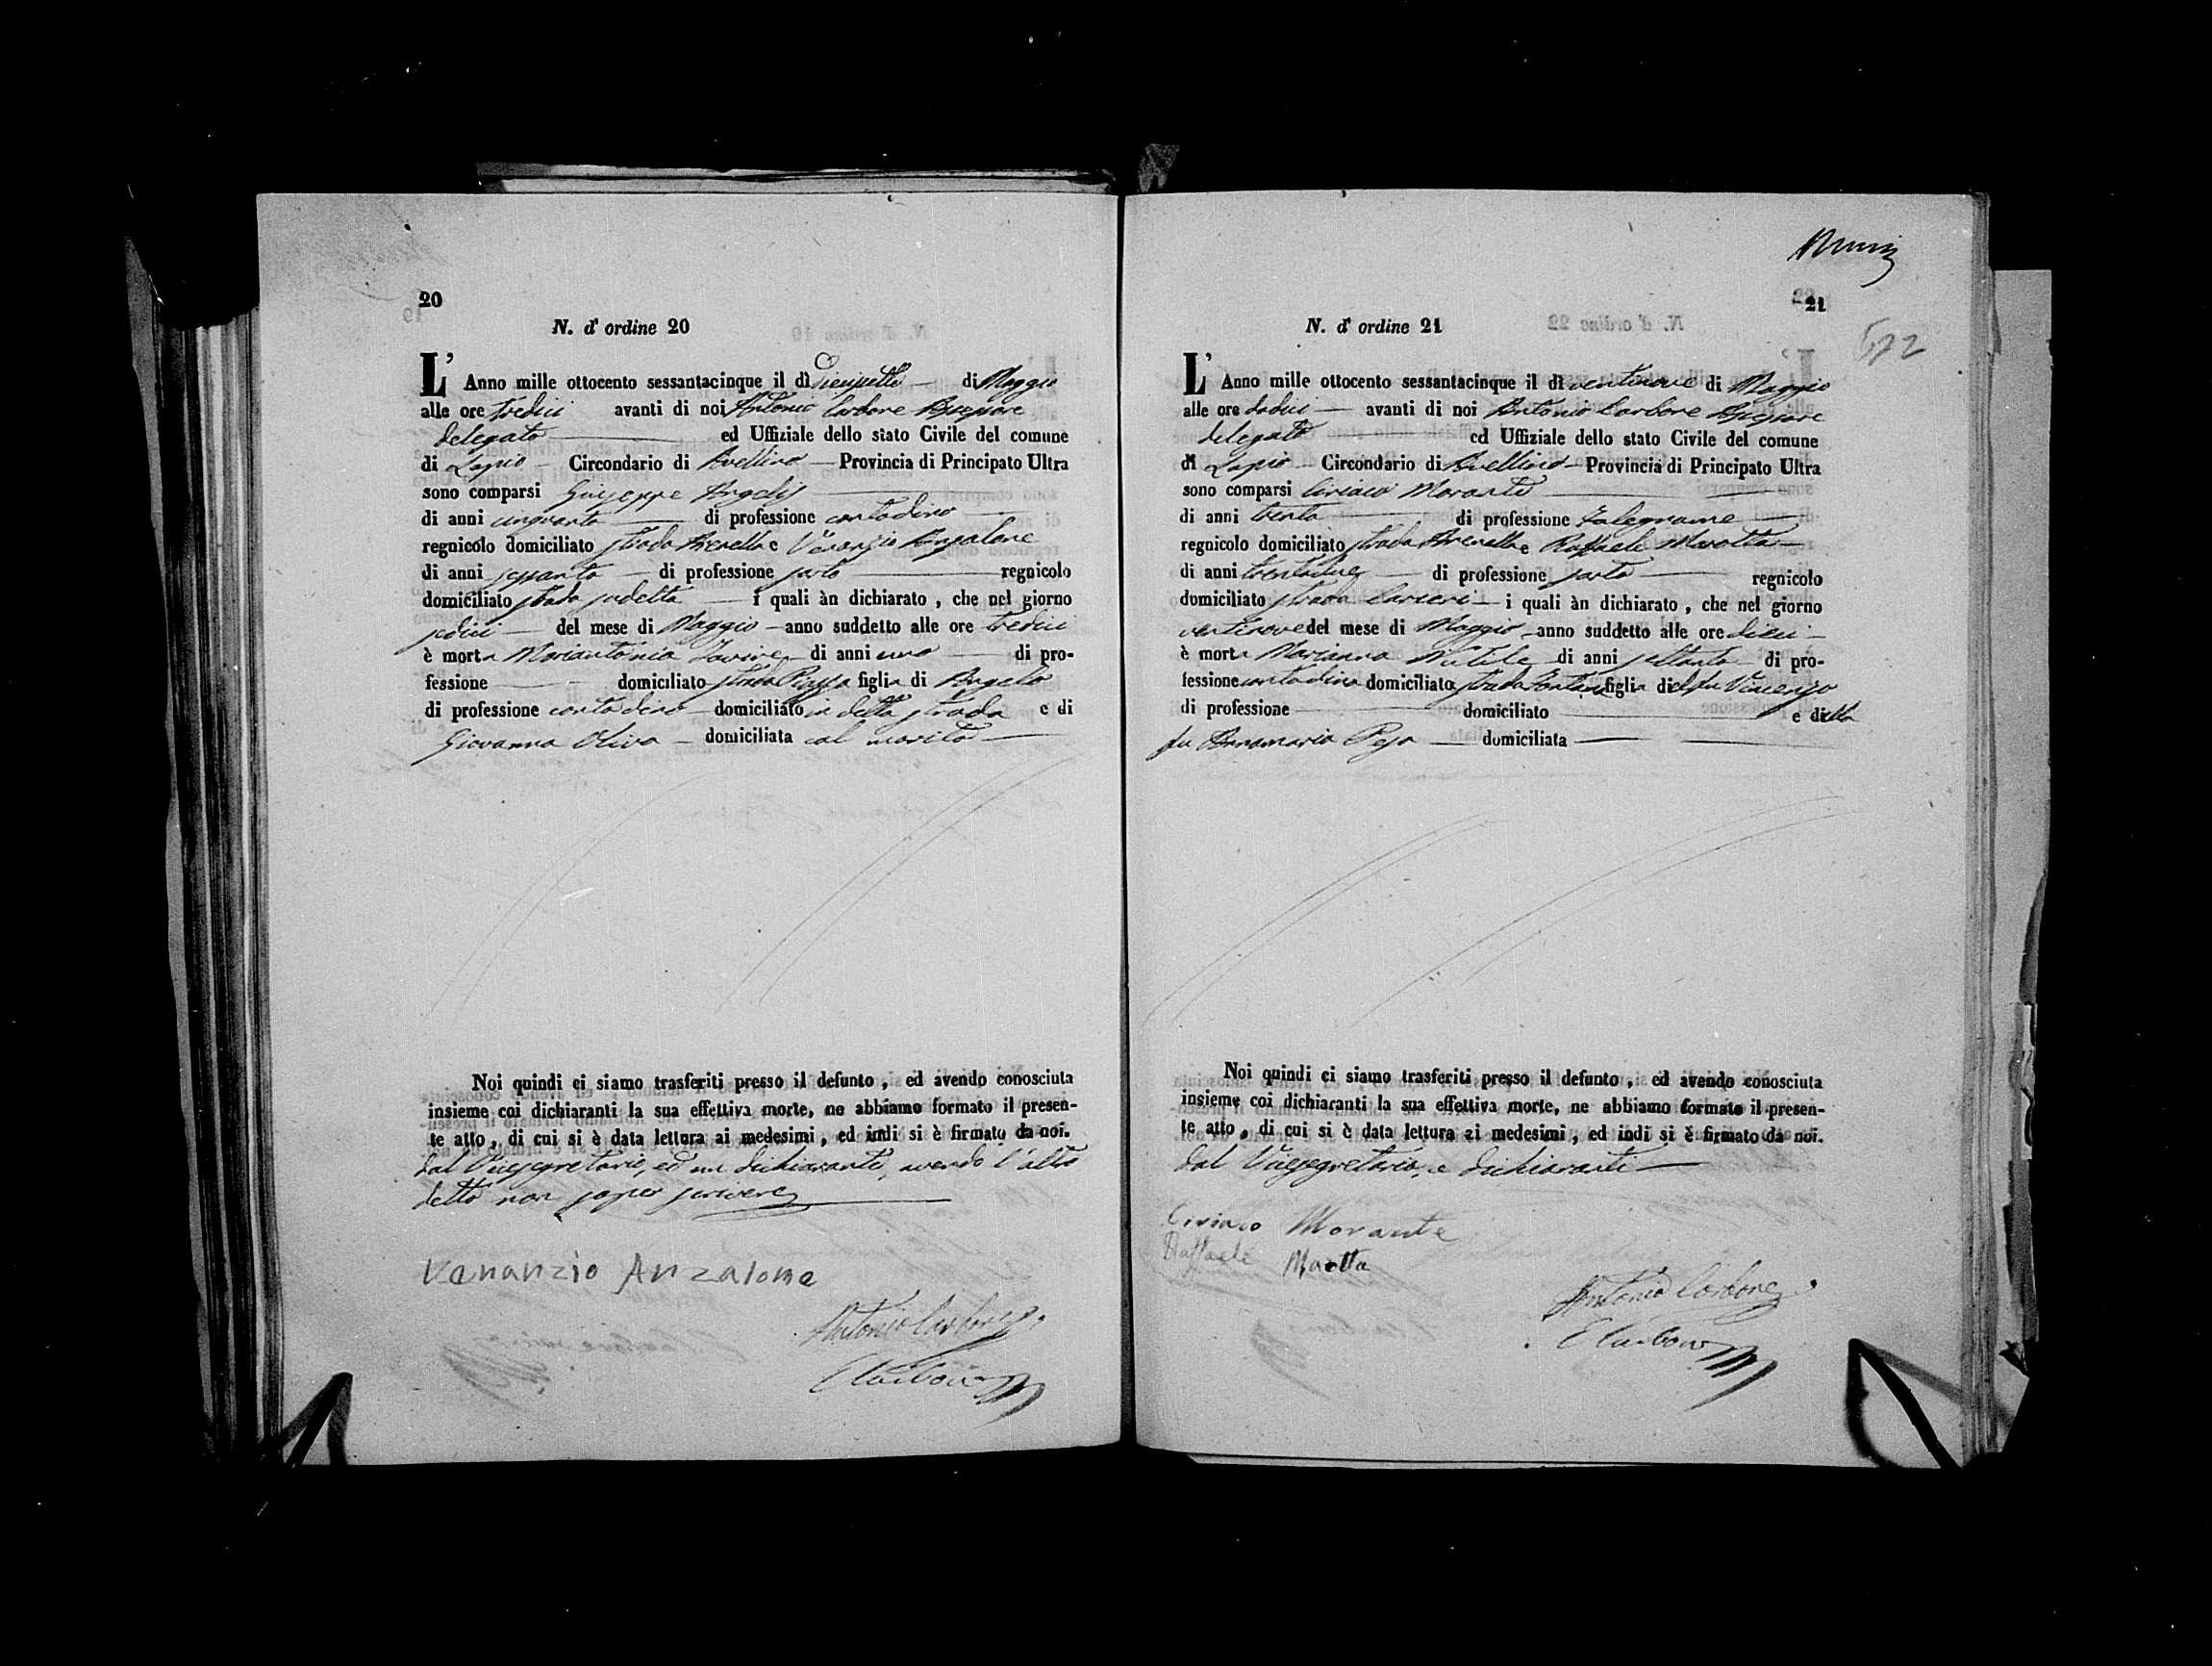 20
N. d' ordine 20
L' Anno mille ottocento sessantacinque il dì diciasette di Maggio
alle ore tredici avanti di noi Antonio Carbone Assessore
delegato ed Uffiziale dello stato Civile del comune
di Lapio Circondario di Avellino Provincia di Principato Ultra
sono comparsi Giuseppe Angelis
di anni cinquanta di professione contadino
regnicolo domiciliato strada Arenella e Venanzio Anzalone
di anni sessanta di professione sarto regnicolo
domiciliato strada sudetta i quali àn dichiarato, che nel giorno
sedici del mese di Maggio anno suddetto alle ore tredici
è morta Mariantonia di anni uno di pro-
fessione domiciliato strada Piazza figlia di Angelo
di professione contadino domiciliato in detta strada e di
Giovanna Oliva domiciliata col marito
Noi quindi ci siamo trasferiti presso il defunto, ed avendo conosciuta
insieme coi dichiaranti la sua effettiva morte, ne abbiamo formato il presen-
te atto, di cui si è data lettura ai medesimi, ed indi si è firmato da noi.
dal Vicesegretario, ed un dichiarante, avendo l'altro
detto non saper scrivere
Venanzio Anzalone
Antonio Carbone
E Carbone
21
N. d' ordine 21
572
L' Anno mille ottocento sessantacinque il dì ventinove di Maggio
alle ore dodici avanti di noi Antonio Carbone Assessore
delegato ed Uffiziale dello stato Civile del comune
di Lapio Circondario di Avellino Provincia di Principato Ultra
sono comparsi Ciriaco Morante
di anni trenta di professione Falegname
regnicolo domiciliato strada Arenella e Raffaele Marotta
di anni trentadue di professione sarto regnicolo
domiciliato strada Carceri i quali àn dichiarato, che nel giorno
ventinove del mese di Maggio anno suddetto alle ore dieci
è morta Marianna Nutile di anni settanta di pro-
fessione contadina domiciliata strada Fontana figlia del fu Vincenzo
di professione domiciliato e della
fu Annamaria Pesa domiciliata
Noi quindi ci siamo trasferiti presso il defunto, ed avendo conosciuta
insieme coi dichiaranti la sua effettiva morte, ne abbiamo formato il presen-
te atto, di cui si è data lettura ai medesimi, ed indi si è firmato da noi.
dal Vicesegretario, e dichiaranti
Ciriaco Morante
Raffaele Marotta
Antonio Carbone
E Carbone